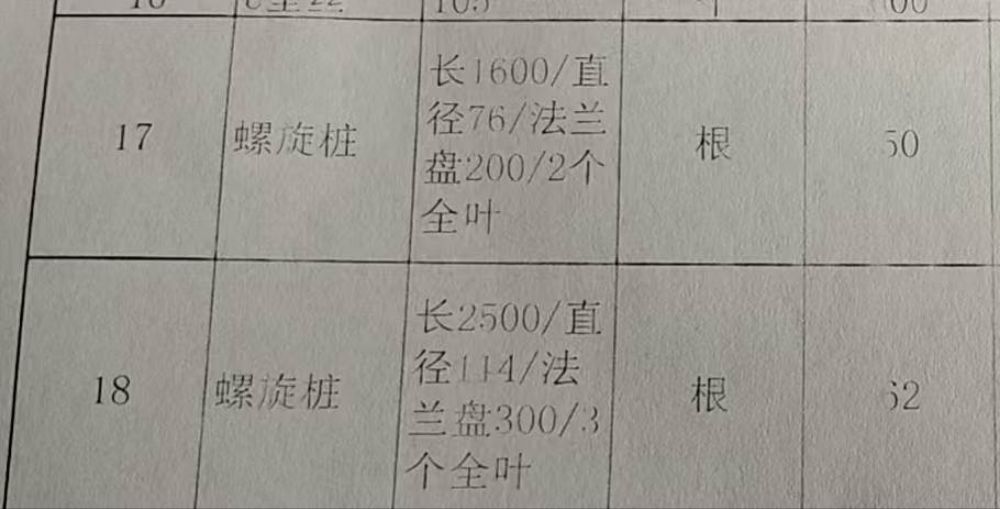 17
螺旋桩
长1600/直
径76/法兰
盘200/2个
全叶
根
18
螺旋桩
长2500/直
径114/法
兰盘300/3
个全叶
根